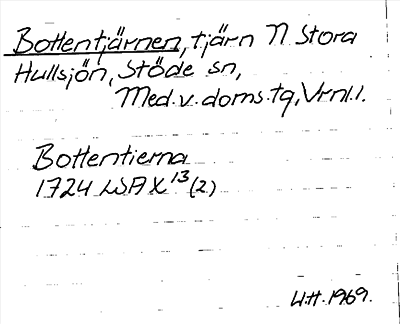 Bottentjärnen, tjärn N Stora
Hullsjön, Stöde sn,
Med.v.doms.tg, Vrnl.l.
Bottentierna
1724 LSA X 13 (2)
U.H. 1969.